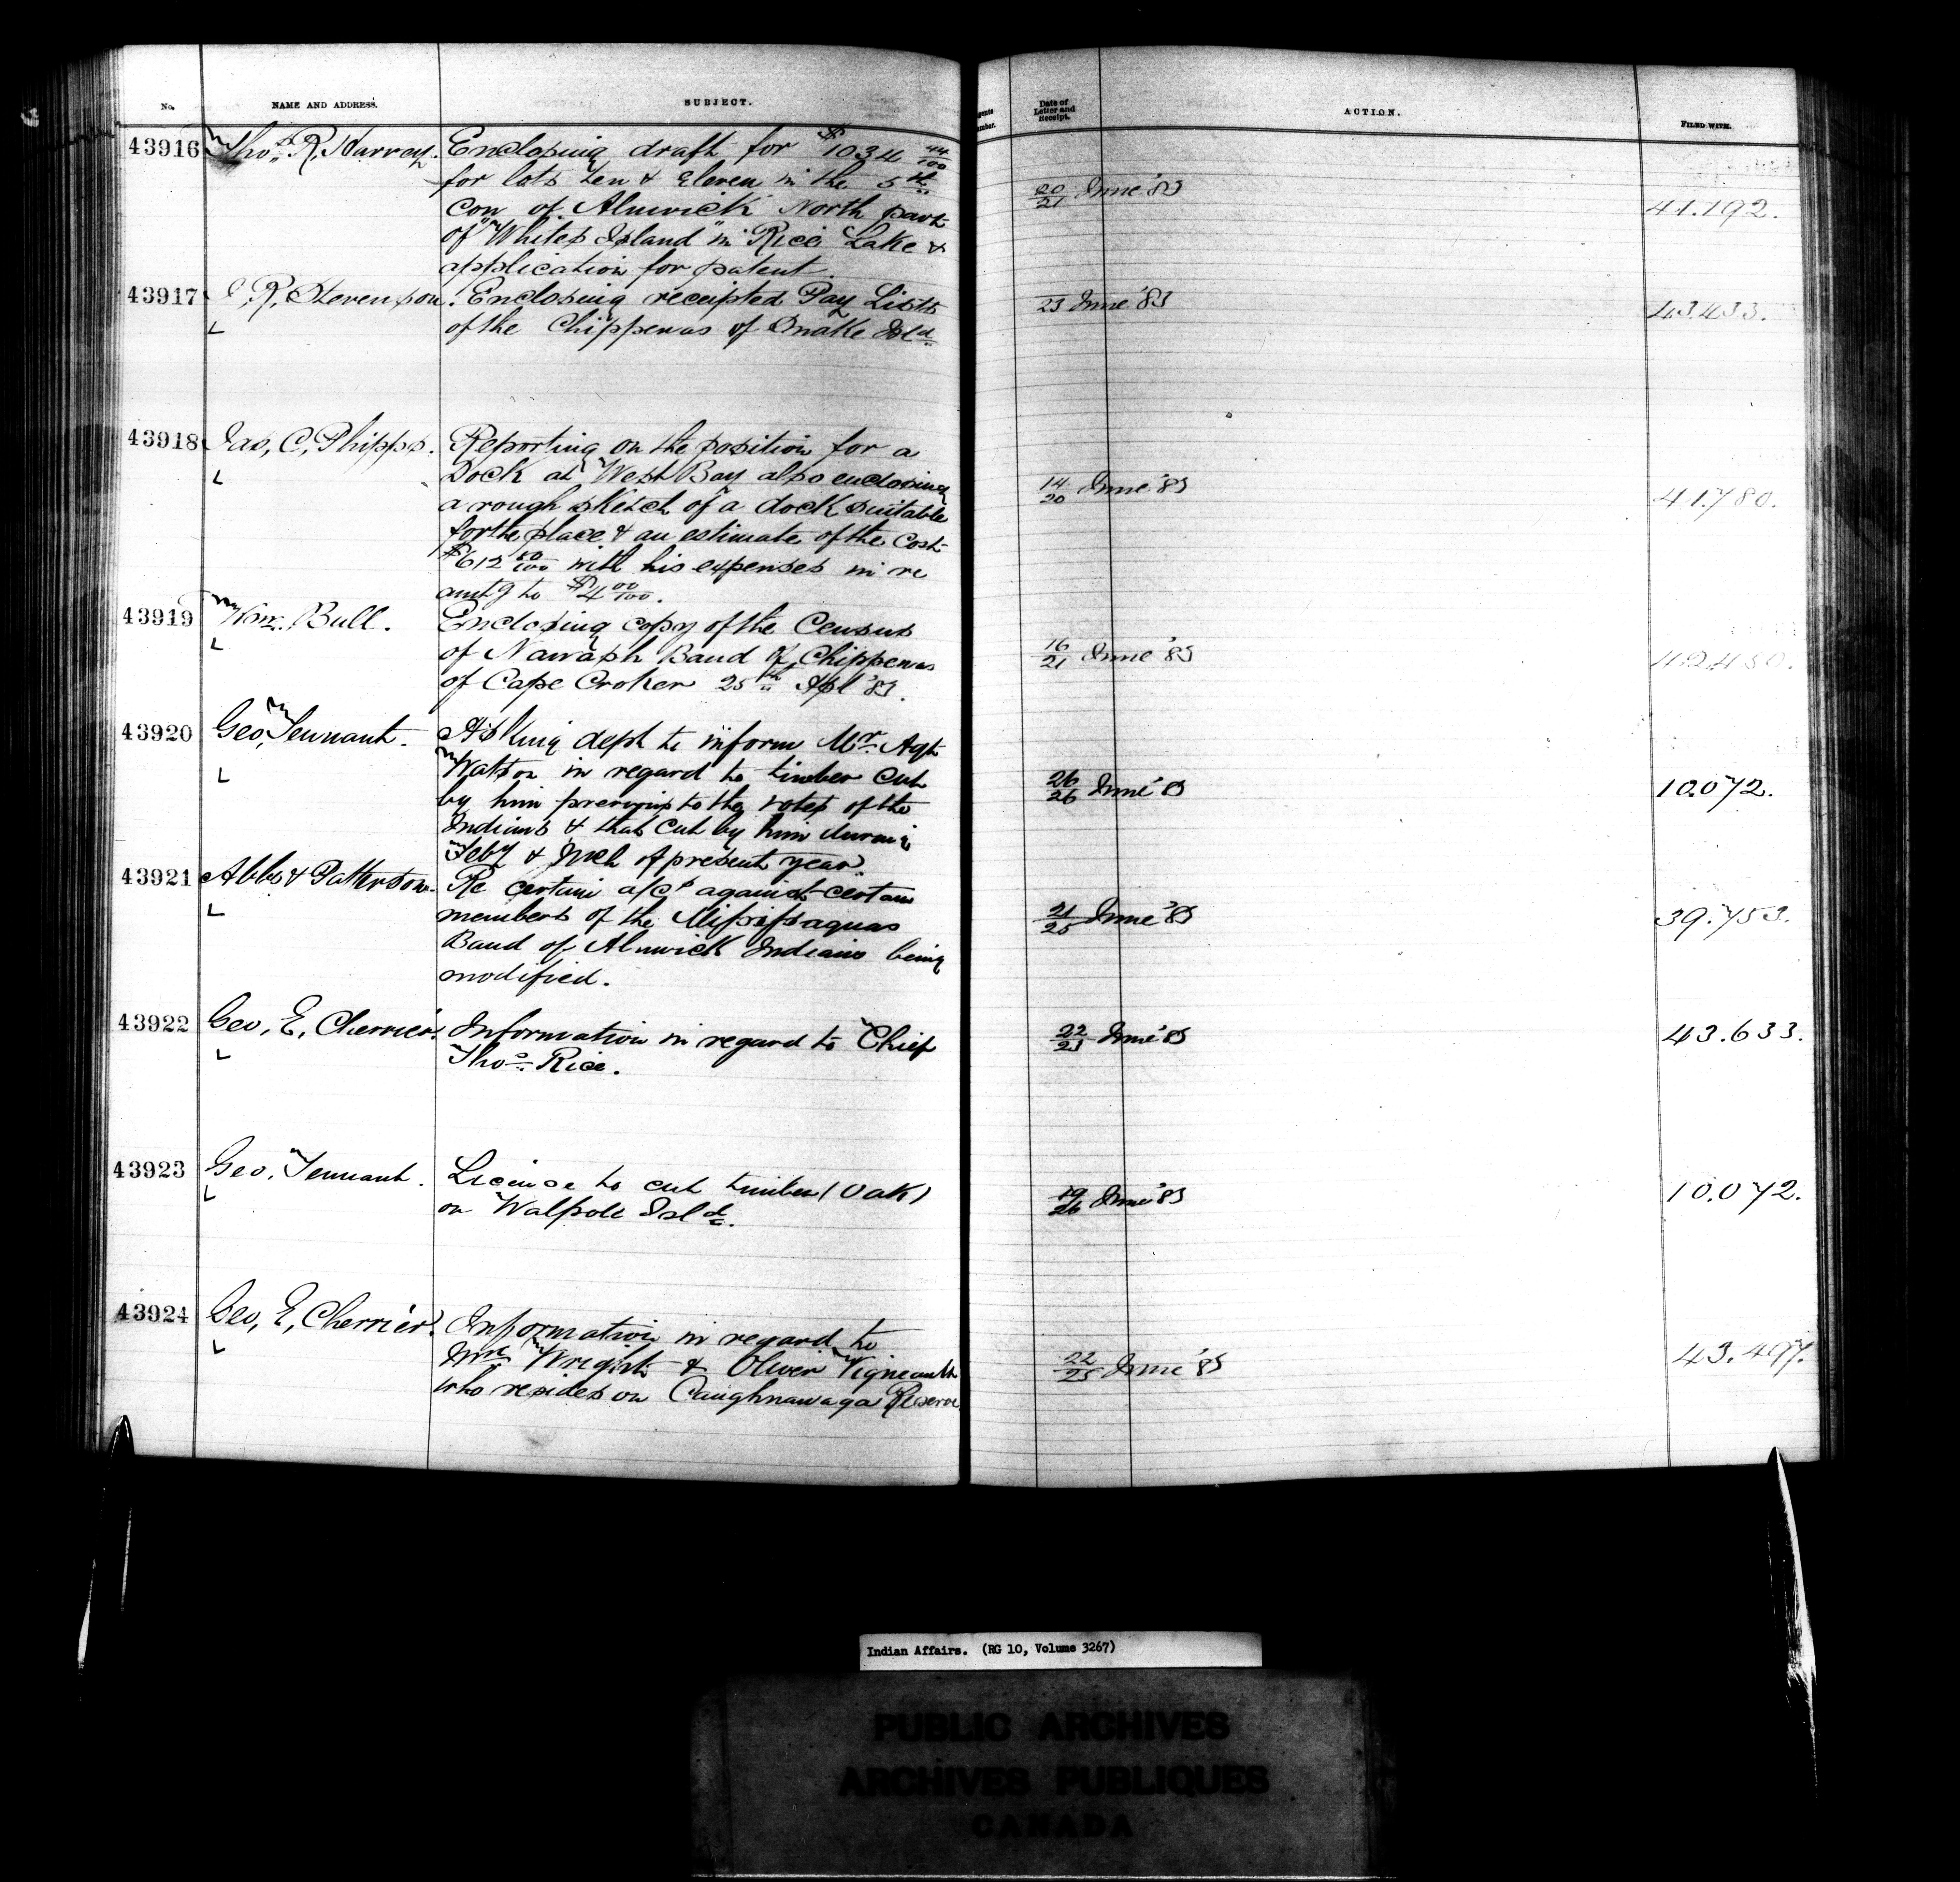 No. NAME AND ADDRESS. SUBJECT. Date of Letter and Receipt. ACTION. FILED WITH.
43916 Thos. R. Harvey. Enclosing draft for $1034 44/100
for lots ten & eleven in the 5th
Con of Alnwick North part
of "Whites Island" in Rice Lake &
application for patent.
20/21 June '83 41.192.
43917 R. Stevenson. Enclosing receipted Pay Lists
of the Chippewas of Snake Isld
23 June '83 43.433.
43918 Jas, C, Phipps. Reporting on the position for a
Dock at West Bay also enclosing
a rough sketch of a dock suitable
for the place & an estimate of the Cost
$612 50/100 with his expenses in re
amtg to $4 00/100.
14/20 June '83 41.780.
43919 Wm. Bull. Enclosing copy of the Census
of Nawash Band of Chippewas
of Cape Croker 25th Apl '83.
16/21 June '83
43920 Geo, Tennant. Asking dept to inform Mr. Agt
Watson in regard to timber cut
by him previous to the votes of the
Indians & that cut by him during
Feby & Mch of present year.
26/26 June '83 10.072.
43921 Abbs & Patterson. Re certain a/cs against certain
members of the Missisaguas
Band of Alnwick Indians being
modified.
21/25 June '83 39.753.
43922 Geo, E, Cherrier. Information in regard to Chief
Thos. Rice.
22/23 June '83 43.633.
43923 Geo, Tennant. License to cut timber (Oak)
on Walpole Isld.
19/26 June '83 10.072.
43924 Geo, E, Cherrier. Information in regard to
Mrs Wright & Oliver Vigneault
who resides on Caughnawaga Reserve
22/25 June '83 43.497.
Indian Affairs. (RG 10, Volume 3267)
PUBLIC ARCHIVES
ARCHIVES PUBLIQUES
CANADA